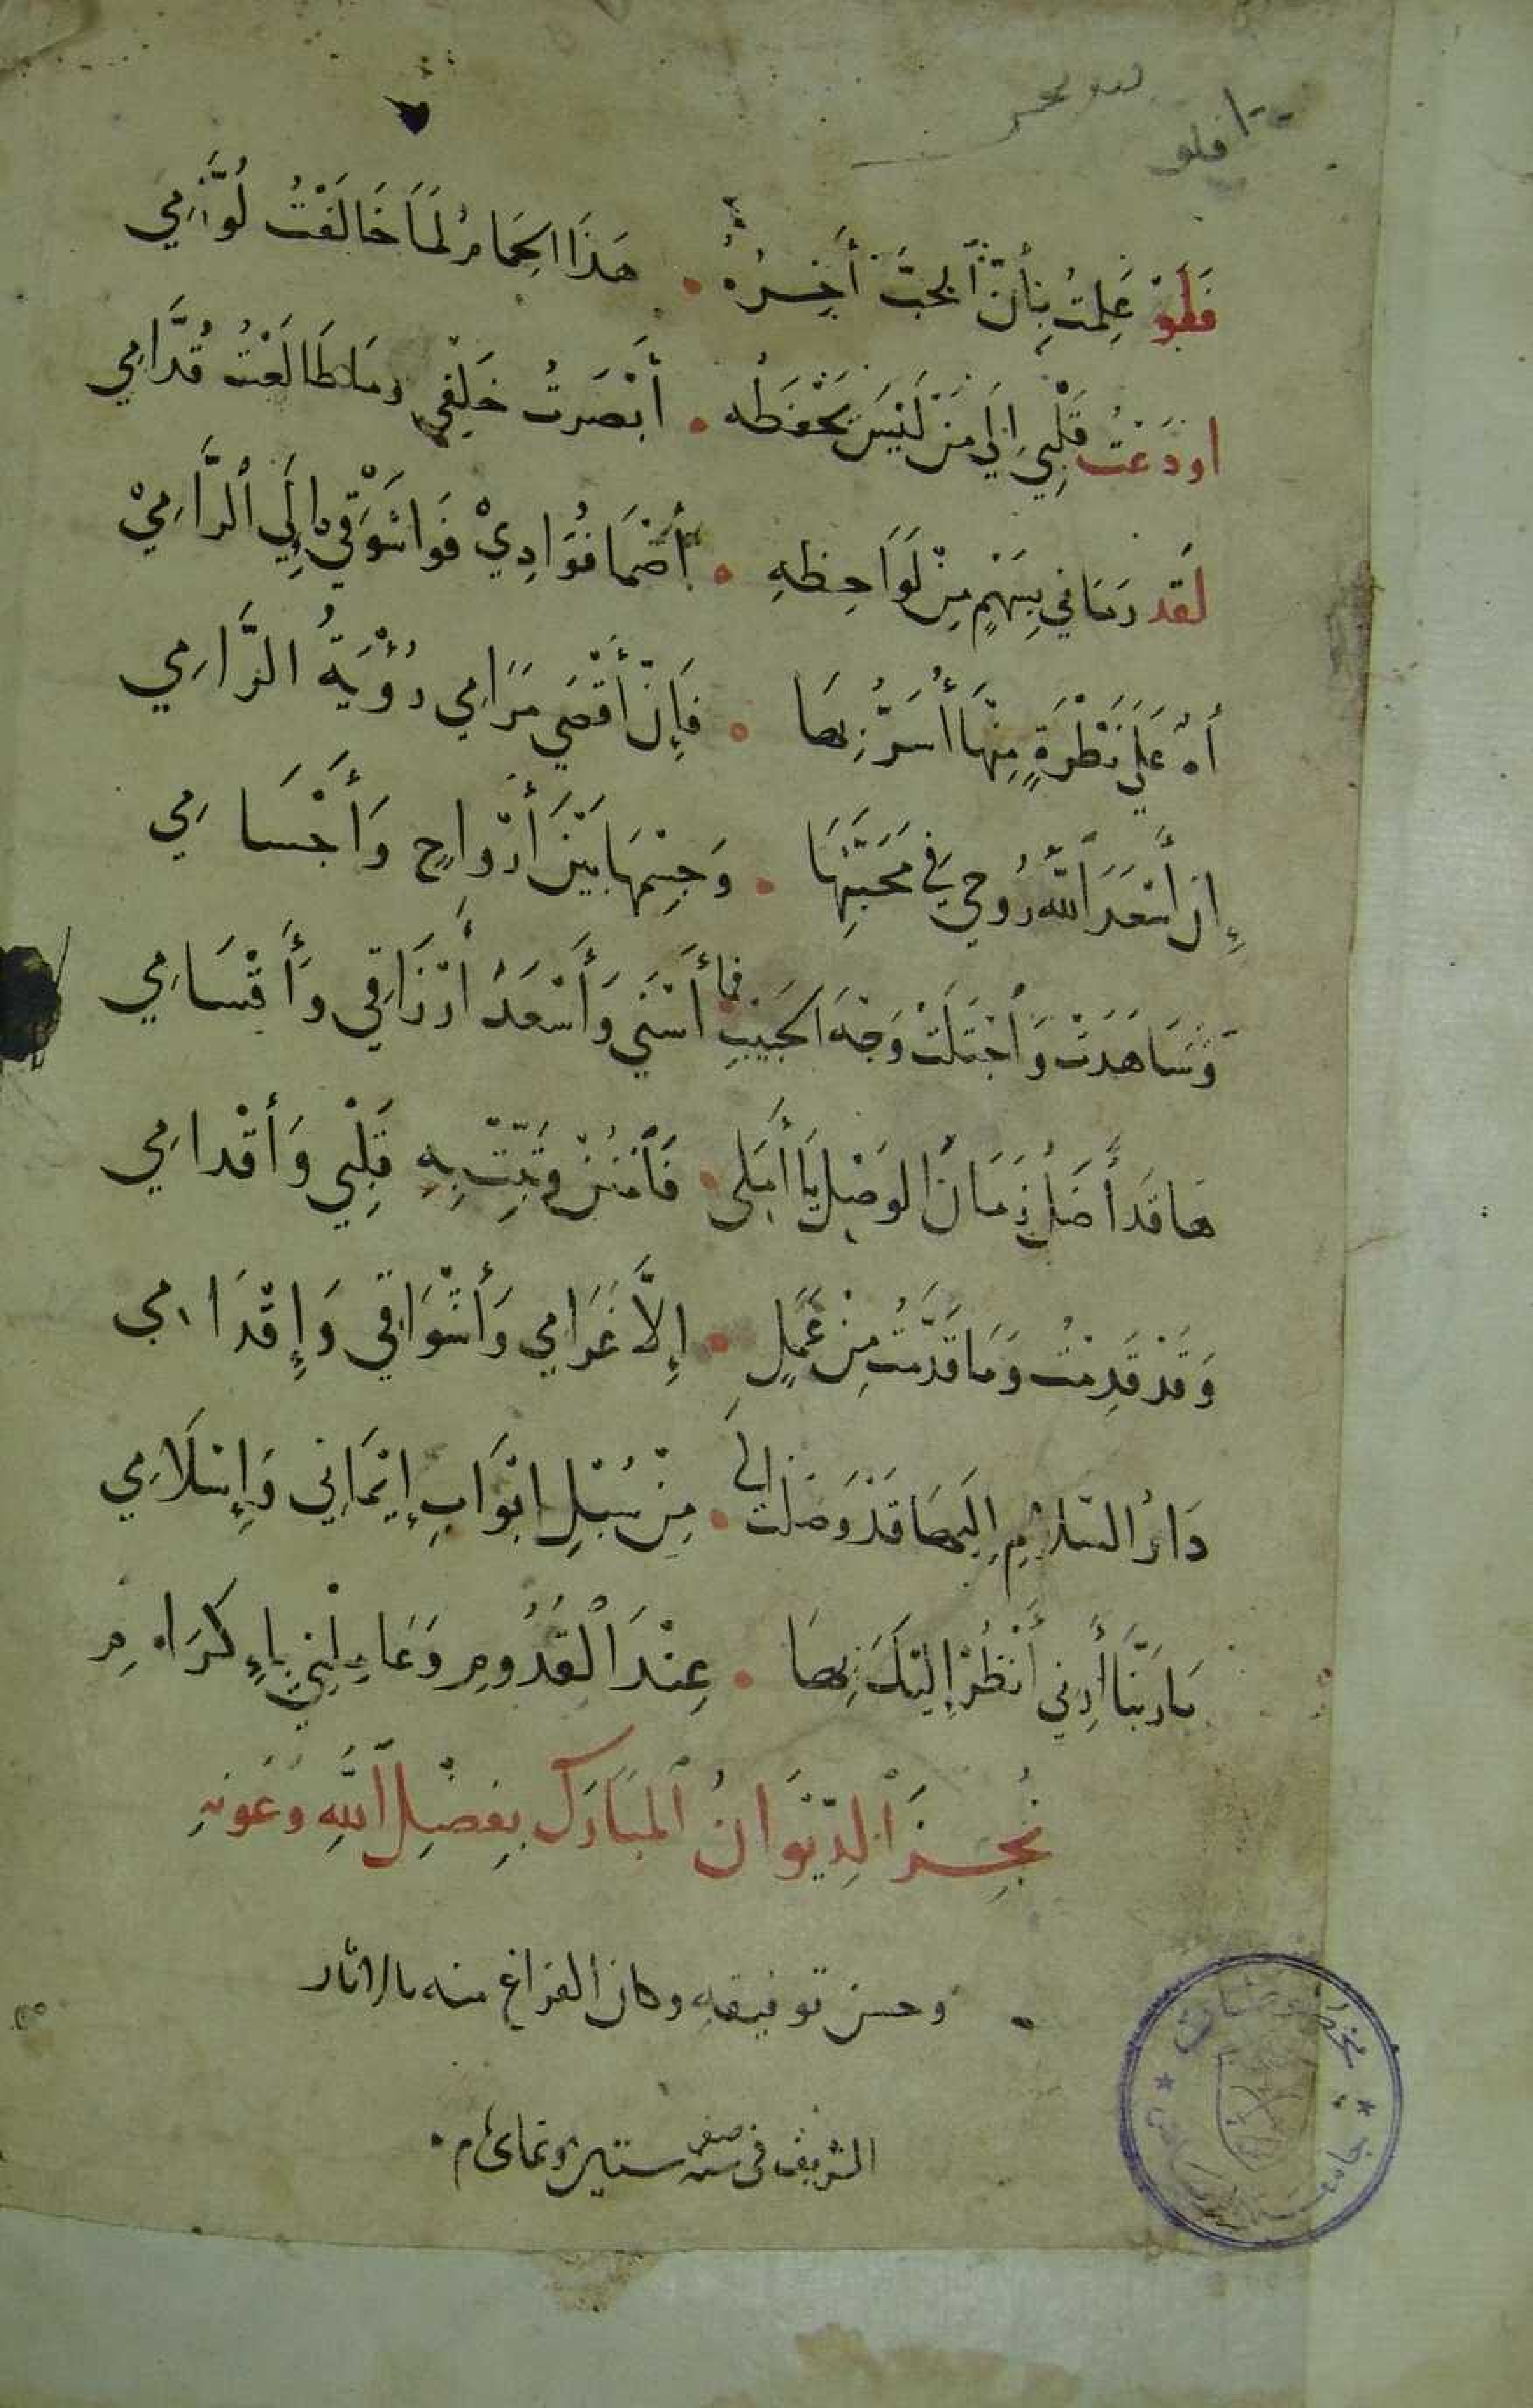 فَلَوْ عَلِمْتُ بِأَنَّ ٱلْحُبَّ أَخِرُهُ • هَذَا الْحِمَامُ لَمَا خَالَفْتُ لُوَّامِي
اودَعْتُ قَلْبِي إِلَي مَنْ لَيْسَ يَحْفَظُه • أَبْصَرتُ خَلْفِي وَمَا طَالَعْتُ قُدَّامِي
لَقَد رَمَاني بِسَهْمٍ مِنْ لَوَاحِظِهِ • أَصْمَا فُؤَادِيْ فَوَاشَوْقِي إِلَي ٱلرَّامِيْ
أهُ عَلَي نَظْرَةٍ مِنْهَا أُسَرُّ بِهَا • فَإِنَّ أَقْصَي مَرَامِي رُؤْيَةُ الرَّامِي
إِن أَسْعَدَ ٱللَّهُ رُوحِي فِي مَحَبَّتِهَا • وَجِسْمَهَا بَيْنَ أَرْوَاحٍ وَأَجْسَامِي
وَشَاهَدَتْ وَٱجْتَلَتْ وَجْهَ الحَبِيبِ فما أَسْنَي وَأَسْعَدُ أَرْزَاقِي وَأَقْسَامِي
هَا قَد أَضَلَّ زَمَانُ الوَصْلِ يَا أَمَلِي • فَٱمْنُنْ وَثَبِّتْ بِهِ قَلْبِي وَأَقْدامِي
وَقَدْ قَدِمْتُ وَمَا قَدَّمْتُ مِنْ عَمَلٍ • إِلَّا غَرَامِي وَأَشْوَاقِي وَإِقْدَامِي
دَارُ السَّلَامِ إِلَيهَا قَدْ وَصَلتُ الي • مِنْ سُبْلِ ابْوَابِ إِيْمَانِي وَإِسْلَامِي
يَا رَبَّنَا أَرِني أَنْظُرْ إِلَيْكَ بِهَا • عِنْدَ ٱلْقُدُومِ وَعَامِلْنِي بِإِكرَامِ
نُجِزَ ٱلدِّيْوَانُ ٱلْمُبَارَك بِفَضْلِ ٱللَّهِ وَعَوْنِهِ
وحسن توفيقه وكان الفراغ منه بالاثار
الشريف في صفر سنة ستين وثمائ م